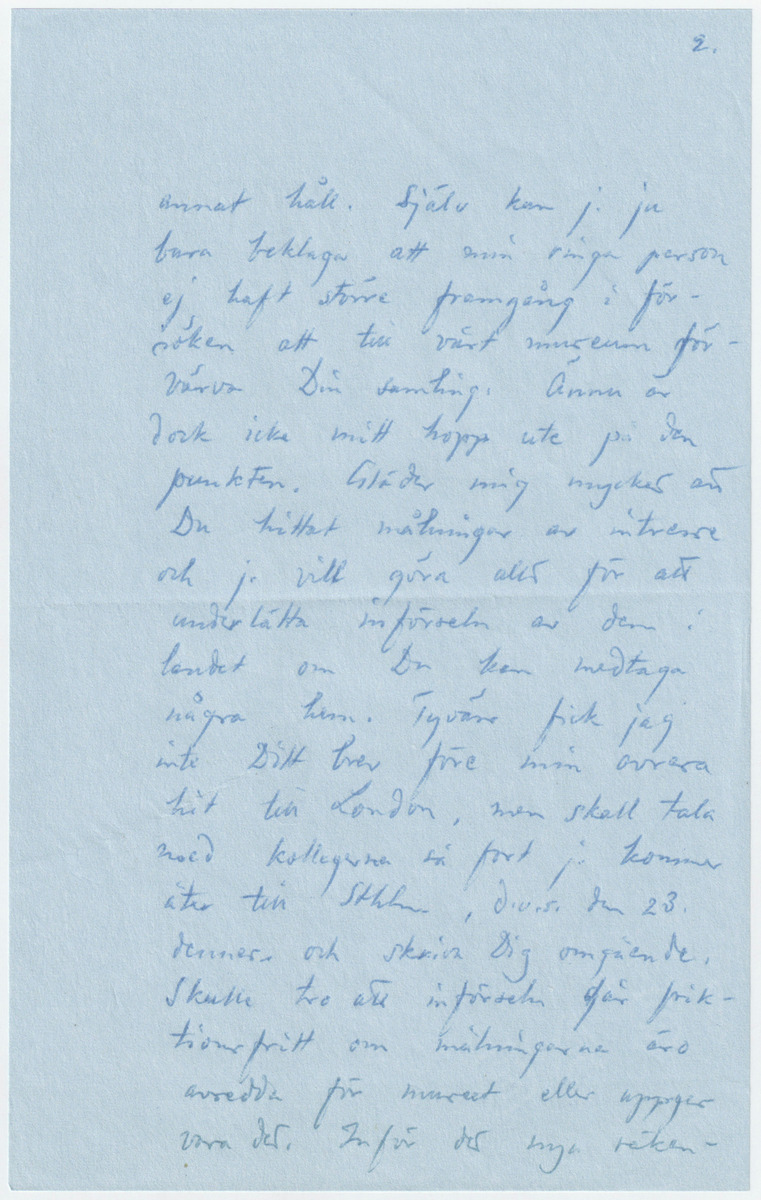 2.
annat håll. Själv kan j. ju
bara beklaga att min ringa person
ej haft större framgång i för-
söken att till vårt museum för-
värva Din samling. Ännu är
dock icke mitt hopp ute på den
punkten. Gläder mig mycket att
Du hittat målningar av intresse
och j. vill göra allt för att
underlätta införseln av dem i
landet om Du kan medtaga
några hem. Tyvärr fick jag
inte Ditt brev före min avresa
hit till London, men skall tala
med kollegerna så fort j. kommer
åter till Sthlm, d.v.s. den 23.
dennes och skriva Dig omgående.
Skulle tro att införseln går frik-
tionsfritt om målningarna äro
avsedda för museet eller uppges
vara det. Inför det nya räken-